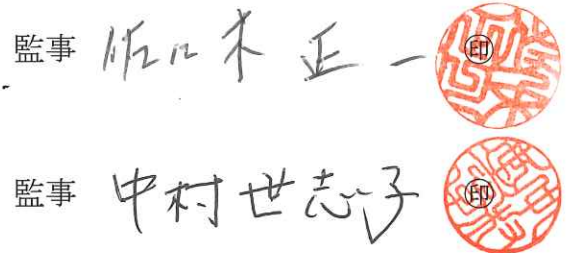 監事 佐々木 正一 ㊞
監事 中村世志子 ㊞